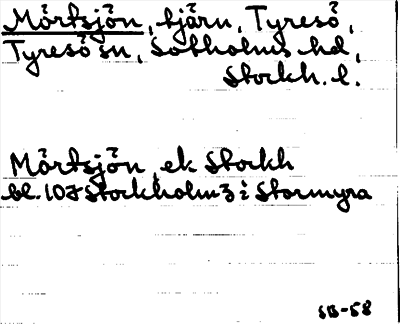 Mörtsjön, tjärn, Tyresö,
Tyresö sn, Sotholms hd,
Stockh. l.
Mörtsjön ek Stockh
bl. 107 Stockholm 3 i Stormyra
SB-58